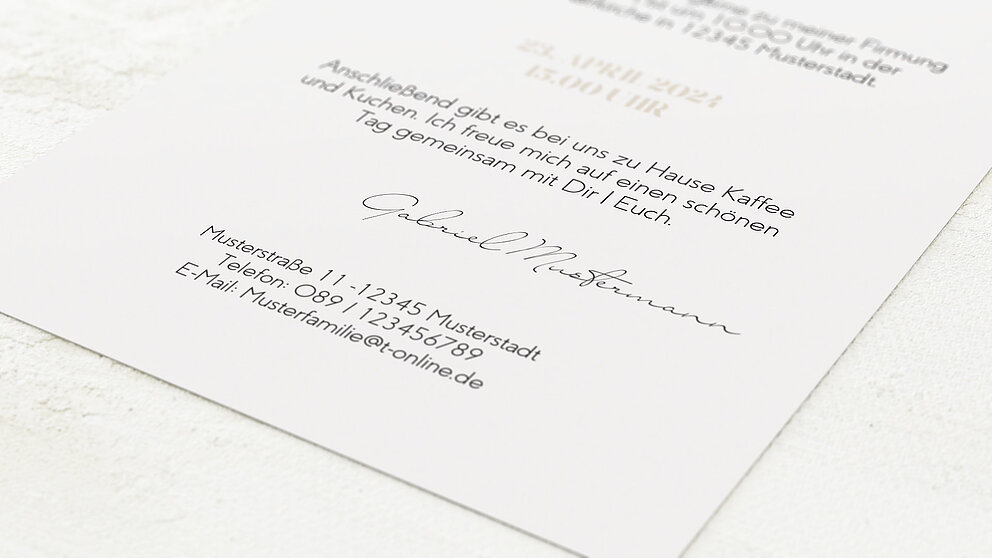 gerne zu meiner Firmung
um 10.00 Uhr in der
in 12345 Musterstadt.
23. APRIL 2024
15.00 UHR
Anschließend gibt es bei uns zu Hause Kaffee
und Kuchen. Ich freue mich auf einen schönen
Tag gemeinsam mit Dir | Euch.
Gabriel Mustermann
Musterstraße 11 -12345 Musterstadt
Telefon: 089 / 123456789
E-Mail: Musterfamilie@t-online.de